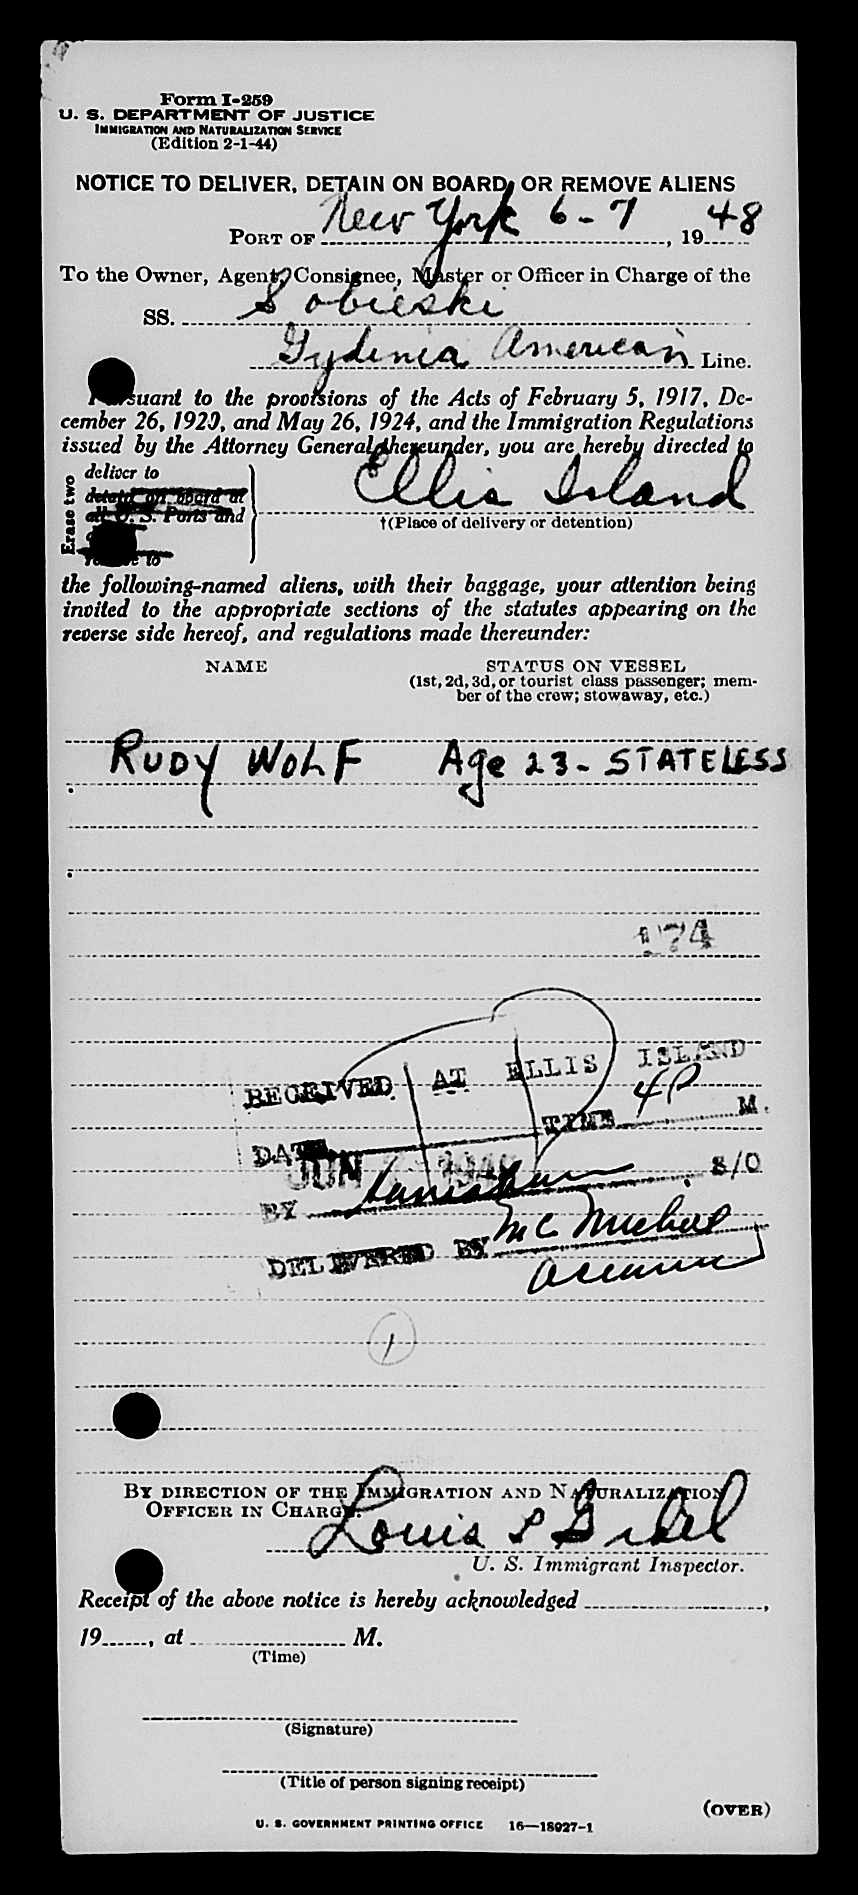 Form I-259
U. S. DEPARTMENT OF JUSTICE
IMMIGRATION AND NATURALIZATION SERVICE
(Edition 2-1-44)
NOTICE TO DELIVER, DETAIN ON BOARD, OR REMOVE ALIENS
PORT OF New York 6-7, 1948
To the Owner, Agent, Consignee, Master or Officer in Charge of the
SS. Sobieski
Gydinia American Line.
Pursuant to the provisions of the Acts of February 5, 1917, De-
cember 26, 1920, and May 26, 1924, and the Immigration Regulations
issued by the Attorney General thereunder, you are hereby directed to
Erase two
deliver to
detain on board at
all U. S. Ports and
Ellis Island
†(Place of delivery or detention)
the following-named aliens, with their baggage, your attention being
invited to the appropriate sections of the statutes appearing on the
reverse side hereof, and regulations made thereunder:
NAME STATUS ON VESSEL
(1st, 2d, 3d, or tourist class passenger; mem-
ber of the crew; stowaway, etc.)
RUDY WOLF Age 23 - STATELESS
174
RECEIVED AT ELLIS ISLAND
DATE JUN TIME 4P M.
BY S/O
DELIVERED BY
1
BY DIRECTION OF THE IMMIGRATION AND NATURALIZATION
OFFICER IN CHARGE.
Louis P
U. S. Immigrant Inspector.
Receipt of the above notice is hereby acknowledged ,
19 , at M.
(Time)
(Signature)
(Title of person signing receipt)
(OVER)
U. S. GOVERNMENT PRINTING OFFICE 16—18927-1